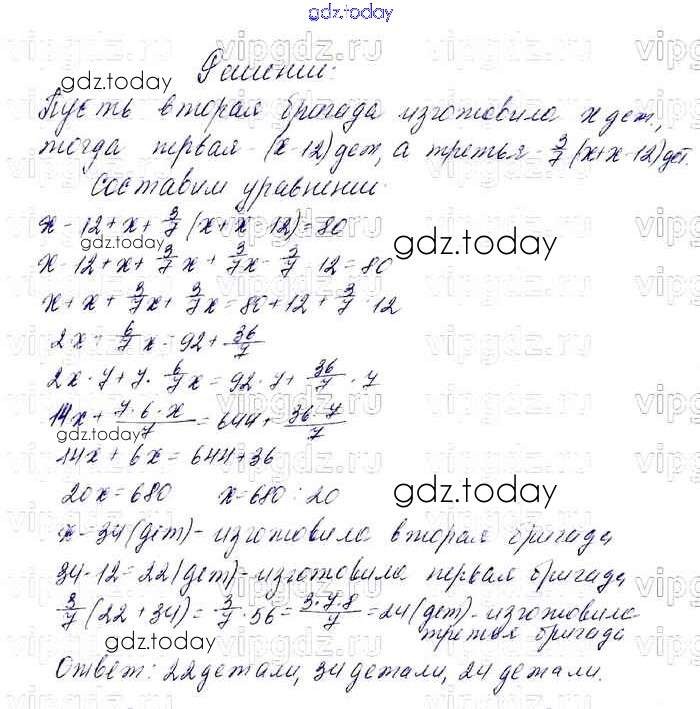 gdz.today
Решение:
gdz.today
Пусть вторая бригада изготовила x дет.,
тогда первая - (x-12) дет, а третья - 3/7 (x+x-12) дет.
Составим уравнение:
x - 12 + x + 3/7 (x+x-12) = 80
gdz.today
gdz.today
x - 12 + x + 3/7 x + 3/7 x - 3/7 · 12 = 80
x + x + 3/7 x + 3/7 x = 80 + 12 + 3/7 · 12
2x + 6/7 x = 92 + 36/7
2x · 7 + 7 · 6/7 x = 92 · 7 + 36/7 · 7
14x + 7·6·x/7 = 644 + 36·7/7
gdz.today
14x + 6x = 644 + 36
20x = 680 x = 680 : 20
gdz.today
x = 34 (дет) - изготовила вторая бригада
34 - 12 = 22 (дет) - изготовила первая бригада
3/7 (22 + 34) = 3/7 · 56 = 3·7·8/7 = 24 (дет) - изготовила
третья бригада
gdz.today
Ответ: 22 детали, 34 детали, 24 детали.
vipgdz.ru